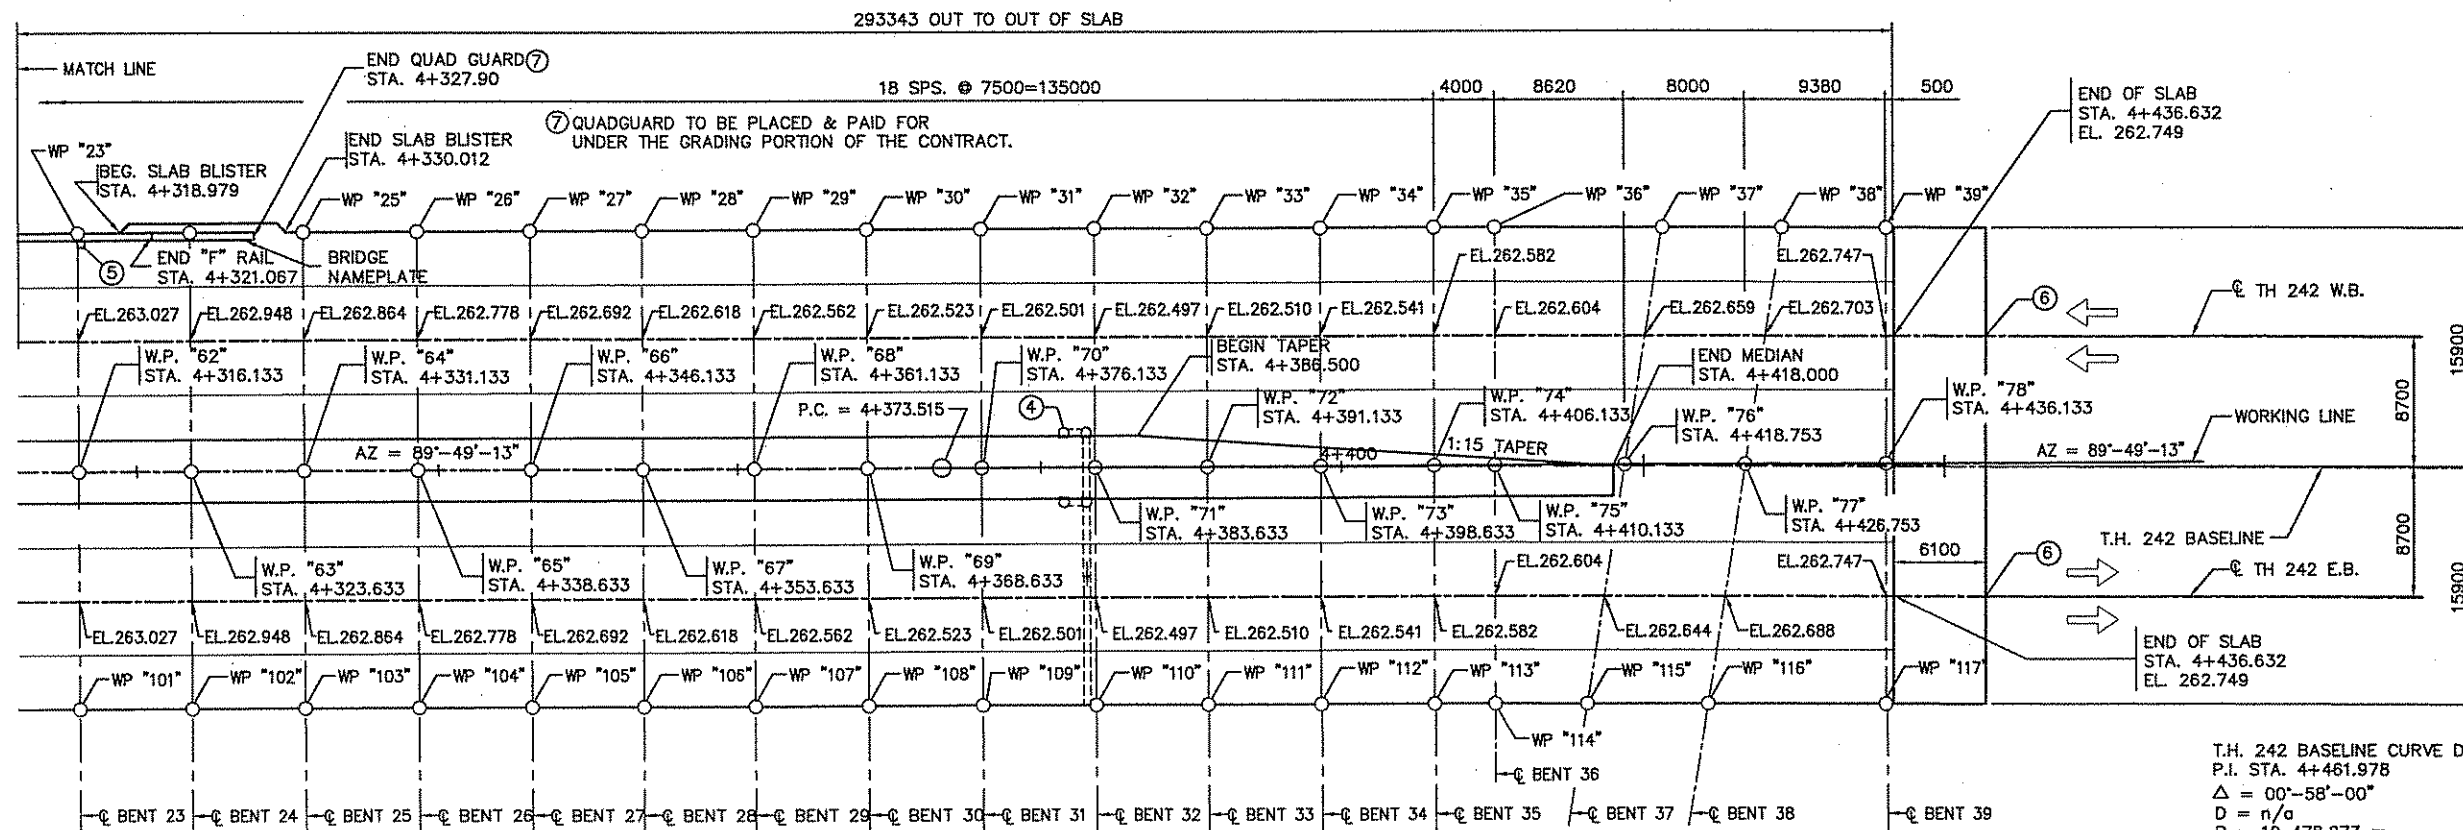 293343 OUT TO OUT OF SLAB
MATCH LINE
END QUAD GUARD ⑦
STA. 4+327.90
18 SPS. @ 7500=135000
4000
8620
8000
9380
500
END OF SLAB
STA. 4+436.632
EL. 262.749
⑦ QUADGUARD TO BE PLACED & PAID FOR
UNDER THE GRADING PORTION OF THE CONTRACT.
WP "23"
BEG. SLAB BLISTER
STA. 4+318.979
END SLAB BLISTER
STA. 4+330.012
WP "25"
WP "26"
WP "27"
WP "28"
WP "29"
WP "30"
WP "31"
WP "32"
WP "33"
WP "34"
WP "35"
WP "36"
WP "37"
WP "38"
WP "39"
⑤
END "F" RAIL
STA. 4+321.067
BRIDGE
NAMEPLATE
EL.262.582
EL.262.747
EL.263.027
EL.262.948
EL.262.864
EL.262.778
EL.262.692
EL.262.618
EL.262.562
EL.262.523
EL.262.501
EL.262.497
EL.262.510
EL.262.541
EL.262.604
EL.262.659
EL.262.703
⑥
℄ TH 242 W.B.
W.P. "62"
STA. 4+316.133
W.P. "64"
STA. 4+331.133
W.P. "66"
STA. 4+346.133
W.P. "68"
STA. 4+361.133
W.P. "70"
STA. 4+376.133
BEGIN TAPER
STA. 4+386.500
END MEDIAN
STA. 4+418.000
15900
8700
P.C. = 4+373.515
④
W.P. "72"
STA. 4+391.133
W.P. "74"
STA. 4+406.133
W.P. "76"
STA. 4+418.753
W.P. "78"
STA. 4+436.133
WORKING LINE
AZ = 89°-49'-13"
4+400
1:15 TAPER
AZ = 89°-49'-13"
W.P. "71"
STA. 4+383.633
W.P. "73"
STA. 4+398.633
W.P. "75"
STA. 4+410.133
W.P. "77"
STA. 4+426.753
T.H. 242 BASELINE
8700
W.P. "63"
STA. 4+323.633
W.P. "65"
STA. 4+338.633
W.P. "67"
STA. 4+353.633
W.P. "69"
STA. 4+368.633
EL.262.604
EL.262.747
6100
⑥
℄ TH 242 E.B.
15900
EL.263.027
EL.262.948
EL.262.864
EL.262.778
EL.262.692
EL.262.618
EL.262.562
EL.262.523
EL.262.501
EL.262.497
EL.262.510
EL.262.541
EL.262.582
EL.262.644
EL.262.688
END OF SLAB
STA. 4+436.632
EL. 262.749
WP "101"
WP "102"
WP "103"
WP "104"
WP "105"
WP "106"
WP "107"
WP "108"
WP "109"
WP "110"
WP "111"
WP "112"
WP "113"
WP "115"
WP "116"
WP "117"
WP "114"
℄ BENT 36
T.H. 242 BASELINE CURVE D
P.I. STA. 4+461.978
Δ = 00°-58'-00"
D = n/a
℄ BENT 23
℄ BENT 24
℄ BENT 25
℄ BENT 26
℄ BENT 27
℄ BENT 28
℄ BENT 29
℄ BENT 30
℄ BENT 31
℄ BENT 32
℄ BENT 33
℄ BENT 34
℄ BENT 35
℄ BENT 37
℄ BENT 38
℄ BENT 39